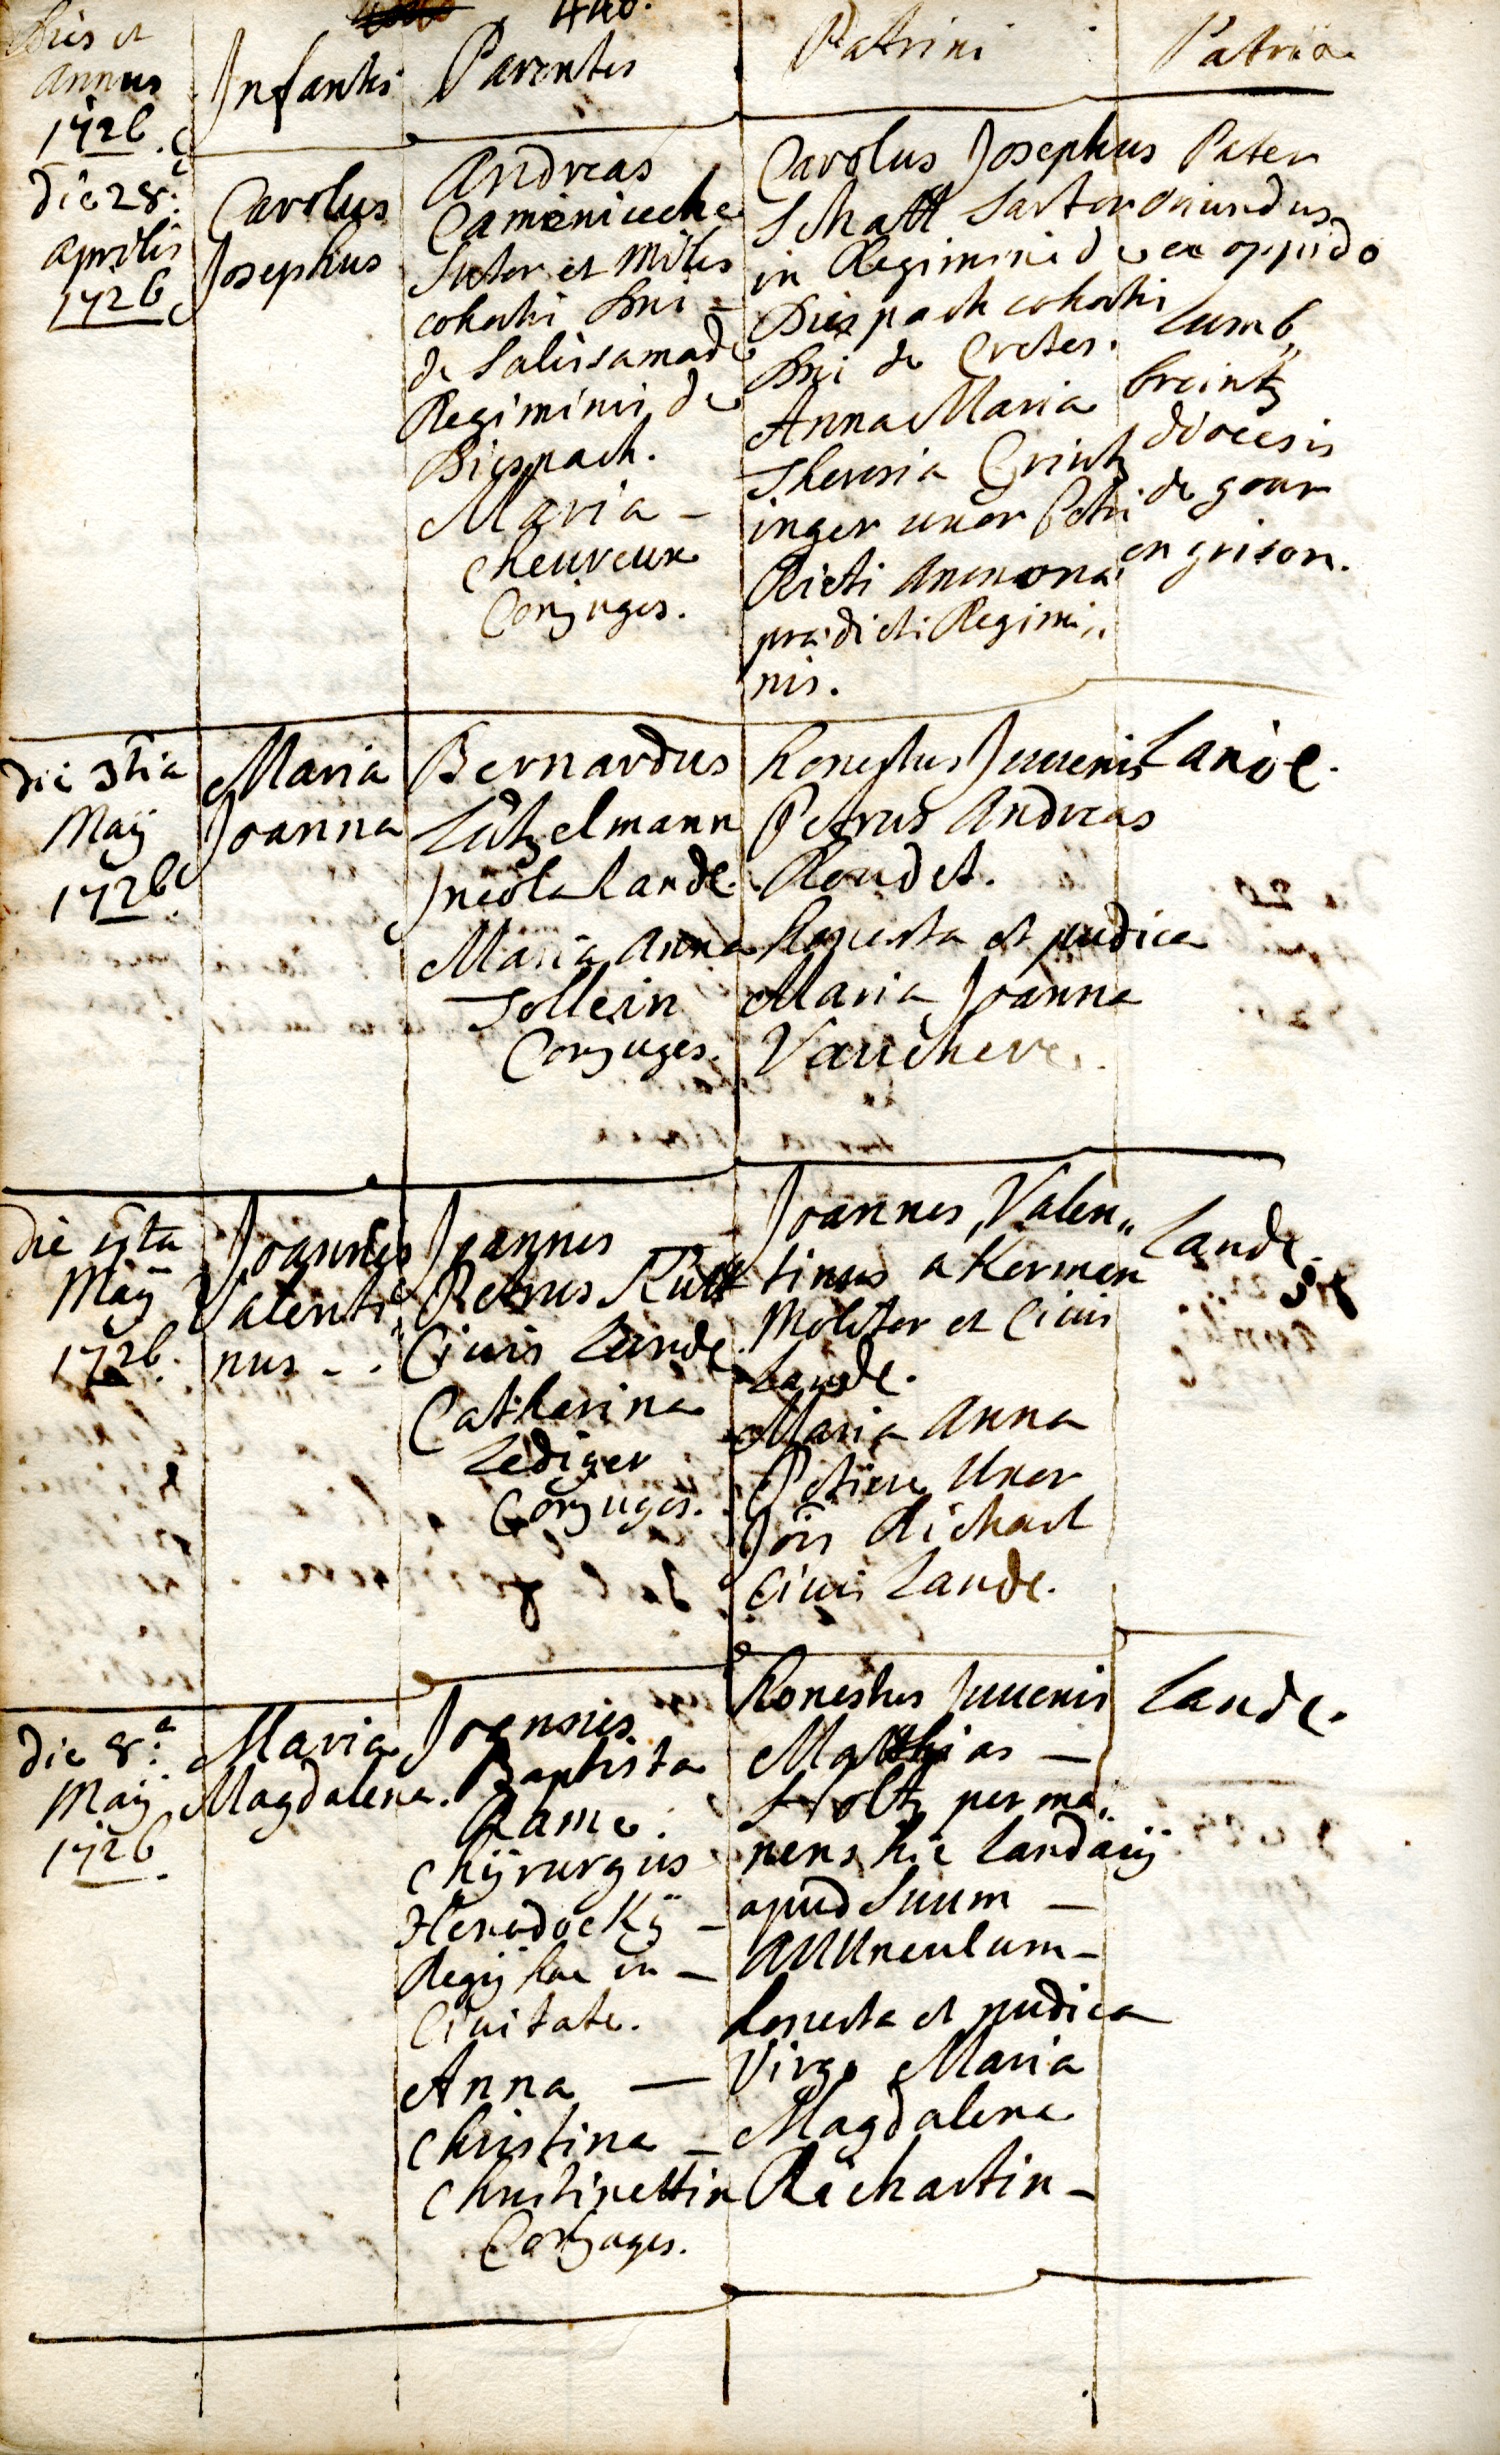 440.
Dies et
annus
1726.
Infantes
Parentes
Patrini
Patria
die 28.
aprilis
1726
Carolus
Josephus
Andreas
Camenicche
Sutor et Miles
cohortis Dni
de Salis samade
Regiminis de
Diespach.
Maria
cheureux
Conjuges.
Carolus Josephus
Schatt Sartor
in Regimine de
Diespach cohortis
Dni de Cretes.
Anna Maria
Theresia Grintz
inger uxor Petri
Ricti
prædicti Regimi,,
nis.
Pater
oriundus
ex oppido
Lumb,,
breintz
diocesis
de gour
en grison.
die 3tia
Maÿ
1726
Maria
Joanna
Bernardus
Lützelmann
Incola Landæ.
Maria Anna
Tollein
Conjuges.
Honestus Juuenis
Petrus Andreas
Roudet.
Honesta et pudica
Maria Joanna
Vauchere.
Landæ.
die 5ta
Maÿ
1726.
Joannes
Valenti
nus - .
Joannes
Petrus Rütt
Ciuis Landæ.
Catherina
Lediger
Conjuges.
Joannes Valen,,
tinus akerman
Molitor et Ciuis
Landæ.
Maria Anna
Petiere Uxor
Jöis Richart
Ciuis Landæ.
Landæ.
die 8.a
Maÿ
1726.
Maria
Magdalena.
Joannes
Baptista
Rame.
Chÿrurgus
Regÿ hac in
Ciuitate.
Anna
Christina
Christinettin
Conjuges.
Honestus Juuenis
Matthias
Stoltz perma,,
nens hic Landauÿ
apud Suum
auunculum
honesta et pudica
Virgo Maria
Magdalena
Richartin
Landæ.